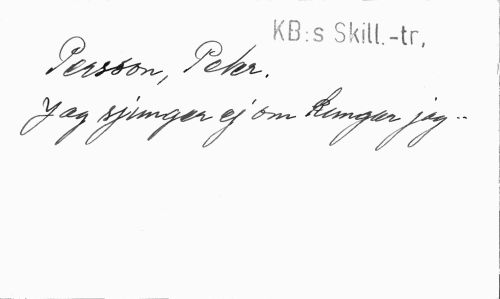 KB:s Skill.-tr,
Persson, Peter.
Jag sjunger ej om kungar jag --